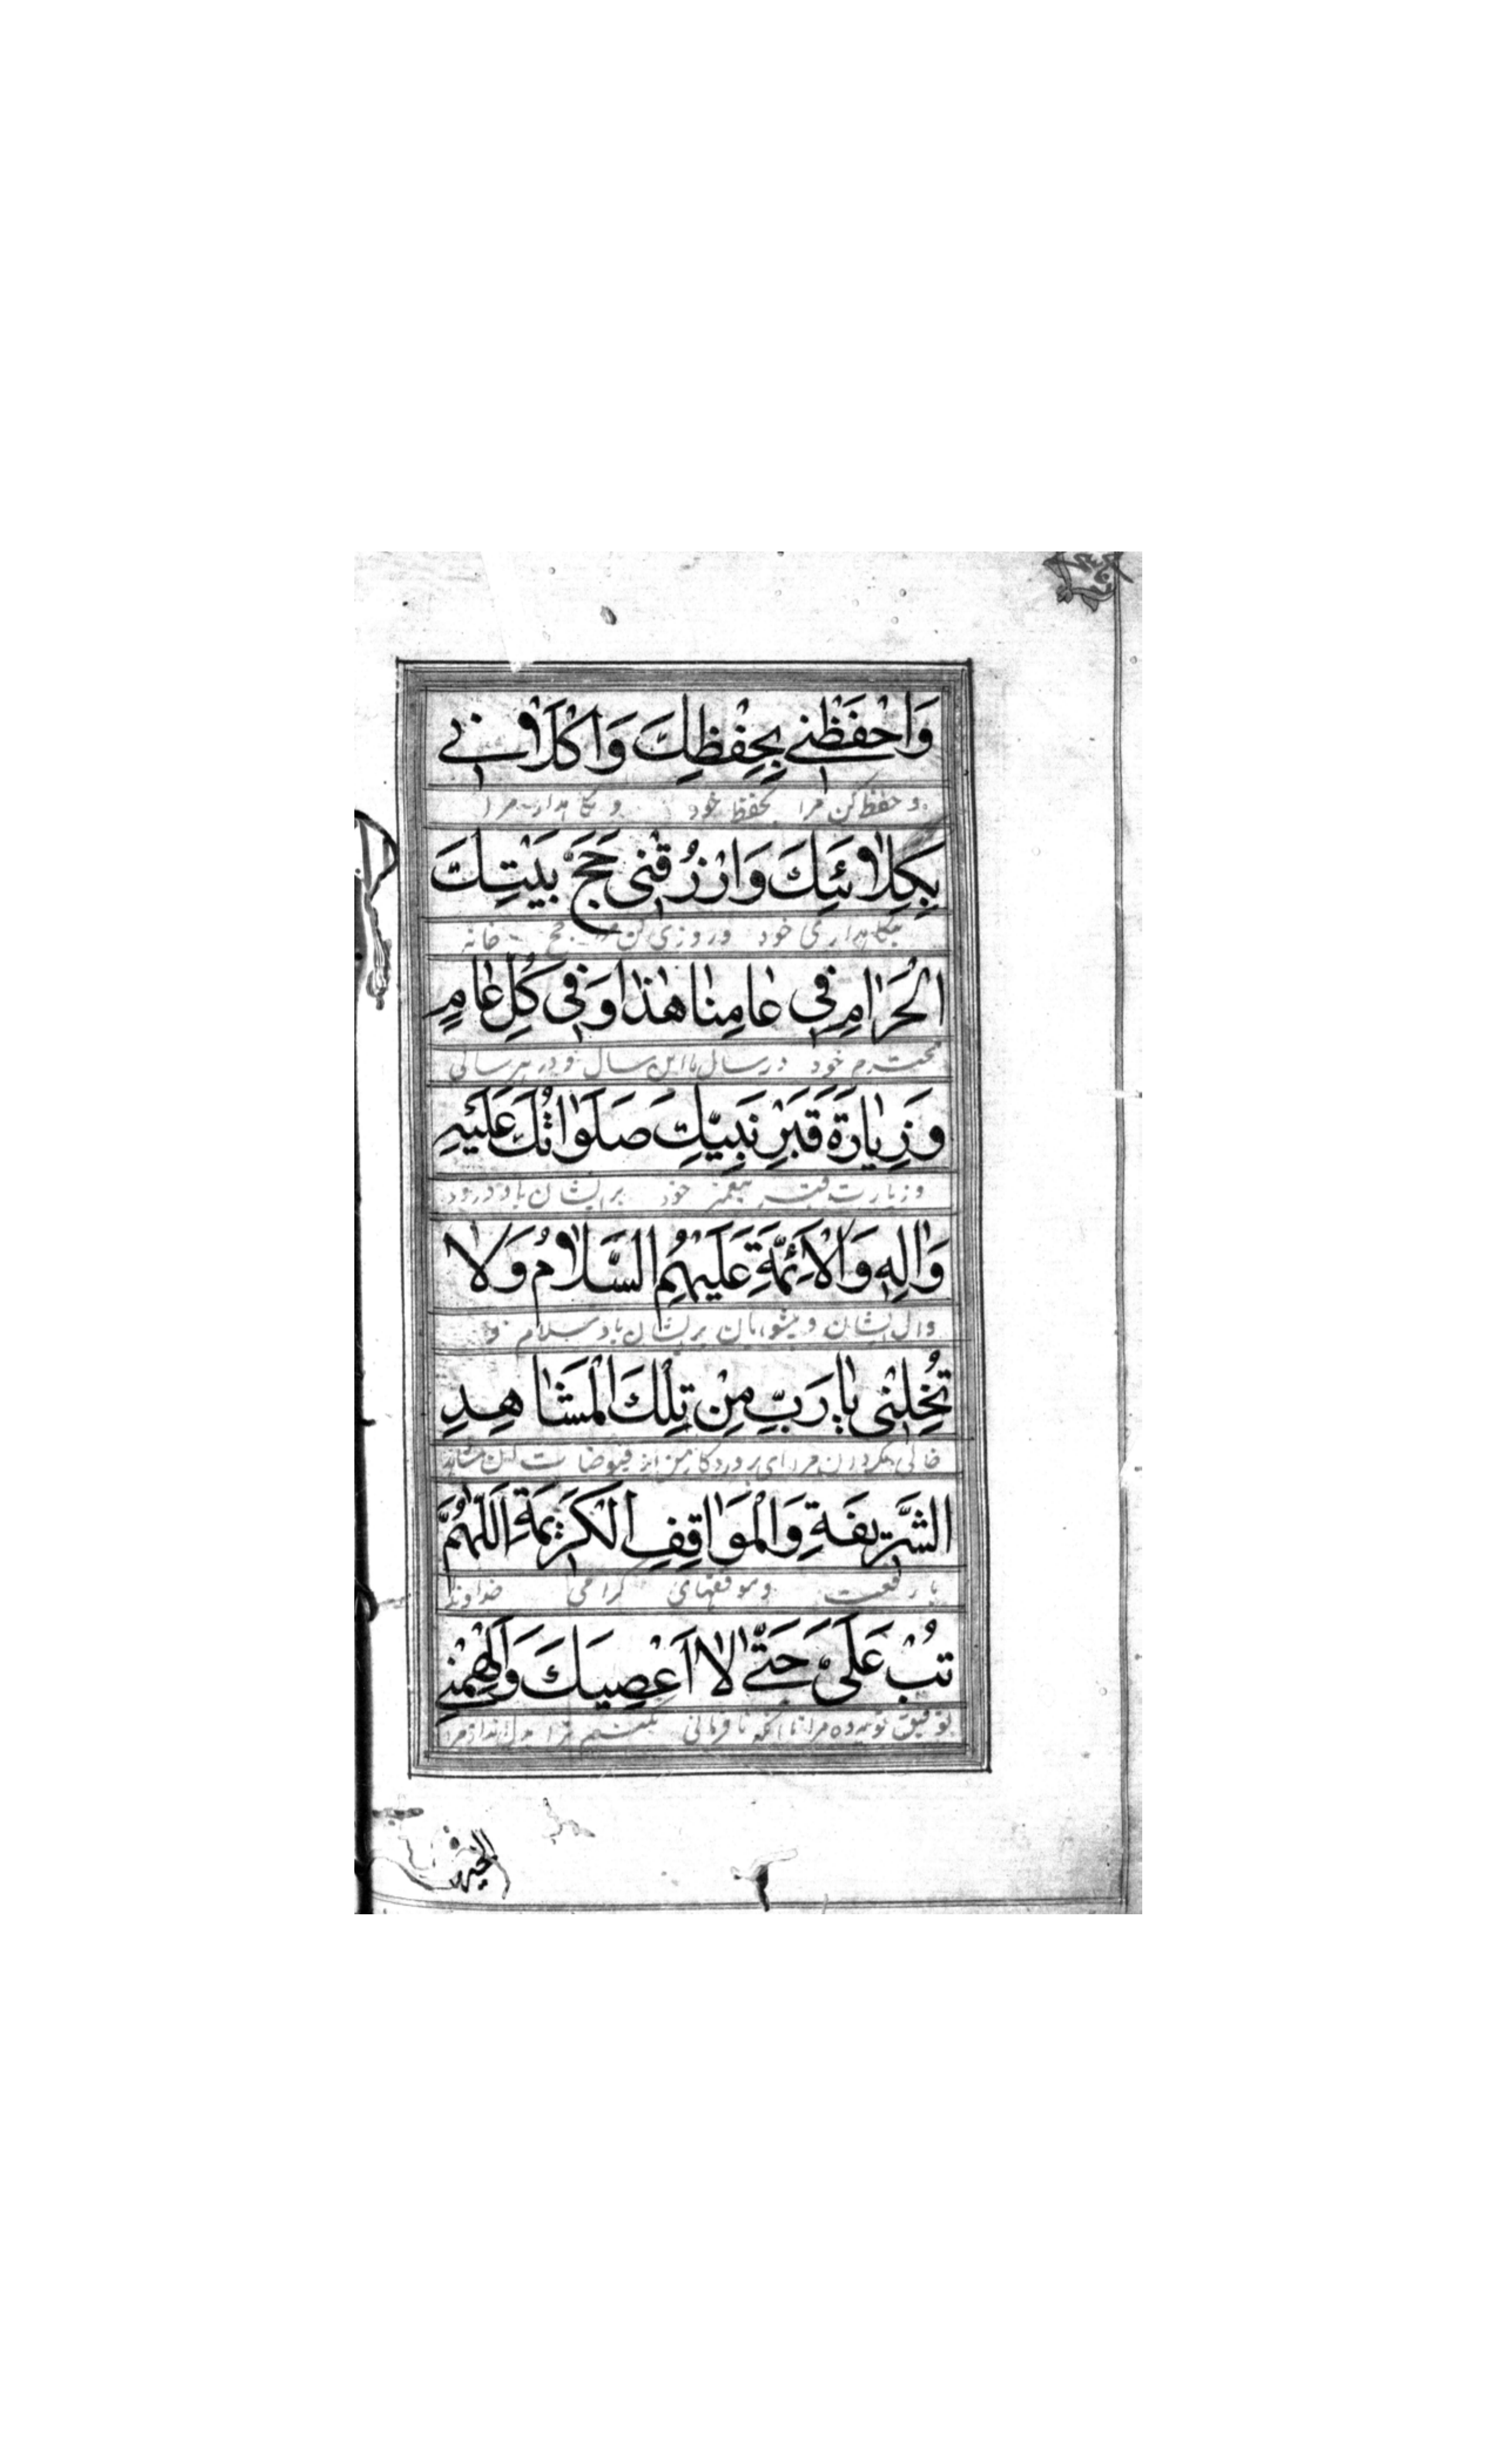 وَاحْفَظْنِي بِحِفْظِكَ وَاكْلَأْنِي
و حفظ کن مرا بحفظ خود و نگاهدار مرا
بِكِلٰائَتِكَ وَارْزُقْنِي حَجَّ بَيْتِكَ
بنگاهداری خود و روزی کن حج خانه
الْحَرٰامِ فِي عٰامِنٰا هٰذٰا وَفِي كُلِّ عٰامٍ
محترم خود در سال ما این سال و در هر سالی
وَزِيٰارَةَ قَبْرِ نَبِيِّكَ صَلَوٰاتُكَ عَلَيْهِ
و زیارت قبر پیغمبر خود بر ایشان باد درود
وَاٰلِهِ وَالْاَئِمَّةِ عَلَيْهِمُ السَّلٰامُ وَلٰا
و ال ایشان و پیشوایان بر ایشان باد سلام و
تُخْلِنِي يٰا رَبِّ مِنْ تِلْكَ الْمَشٰاهِدِ
خالی مگردان مرا ای پروردکار من از فیوضات این مشاهد
الشَّرِيفَةِ وَالْمَوٰاقِفِ الْكَرِيمَةِ اَللّٰهُمَّ
با رفعت و موقفهای کرامی خداوندا
تُبْ عَلَيَّ حَتّٰى لٰا اَعْصِيَكَ وَاَلْهِمْنِي
توفیق توبه ده مرا تا آنکه نافرمانی نکنم ترا و در دل انداز مرا
الخیر